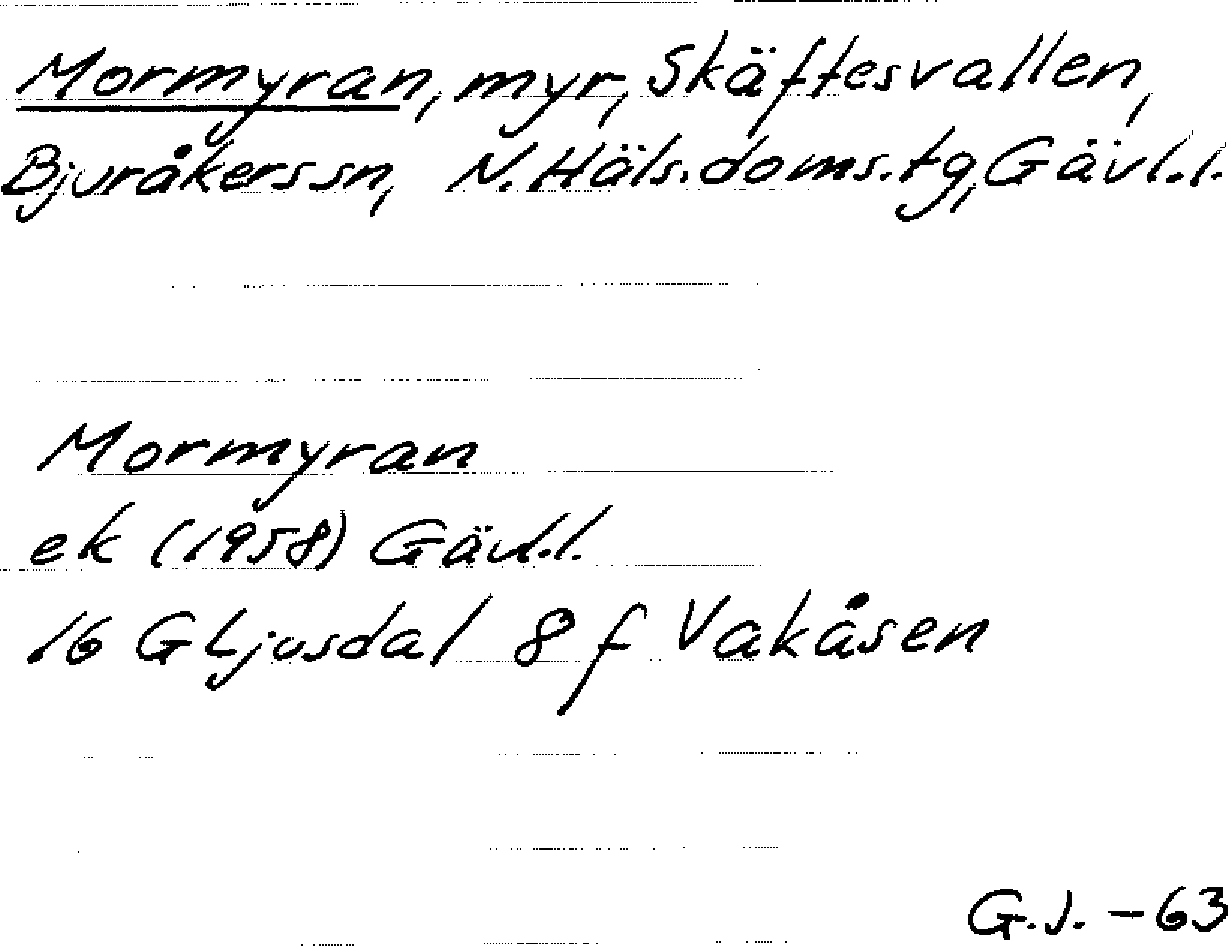 Mormyran, myr, Skäftesvallen,
Bjuråkers sn, N. Häls. doms. tg, Gävl. l.
Mormyran
ek (1958) Gävl. l.
16 G Ljusdal 8 f Vakåsen
G. J. - 63